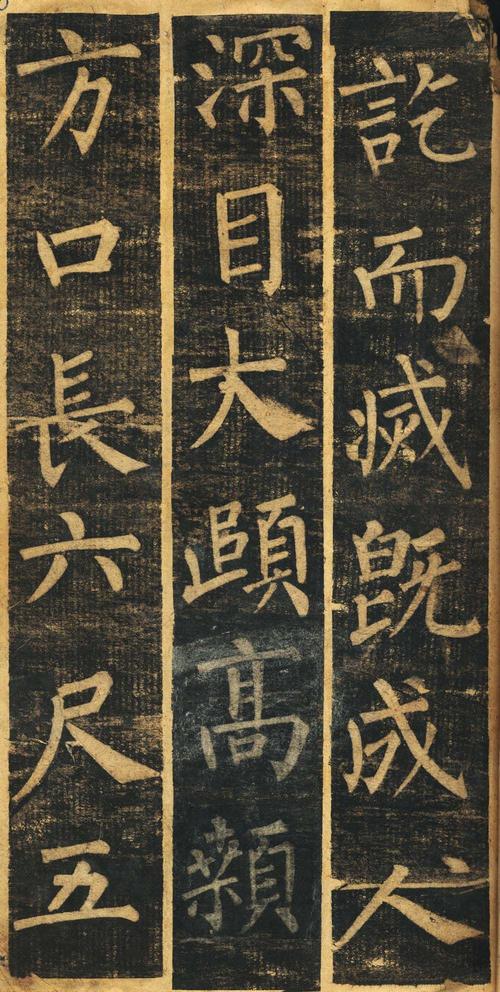 訖而滅既成人
深目大頤髙顙
方口長六尺五